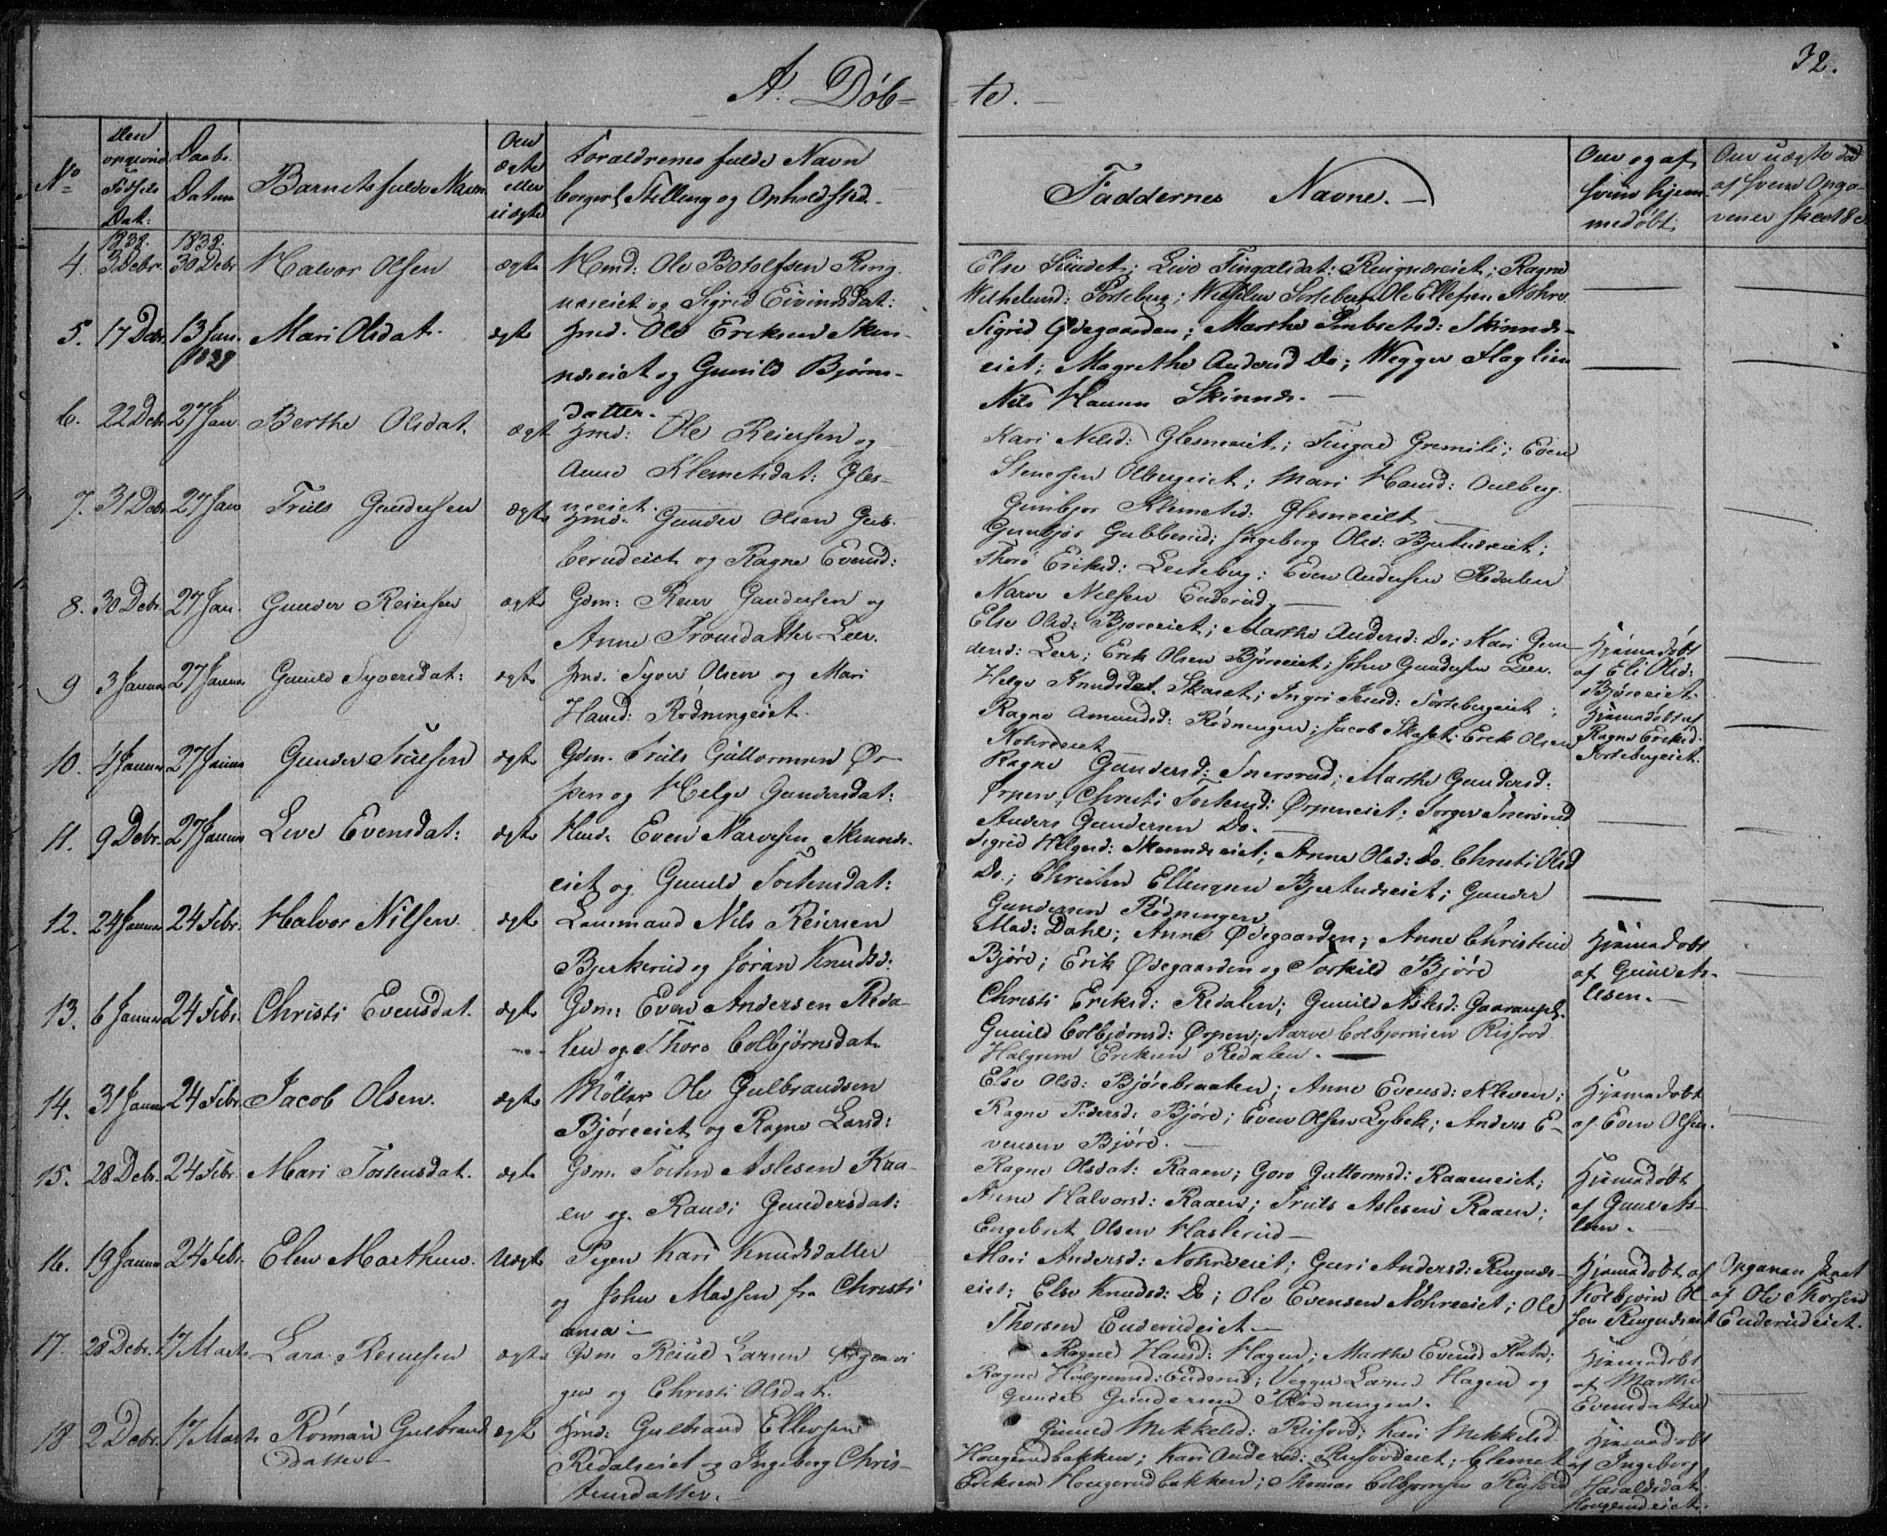 32.
A. Døb-
te.
No
Den
Fødsels
Dat:
Daabs
Datum
Barnets fulde Navn
Om
ægte
eller
uægte
Forældrenes fulde Navn
borgerl Stilling og Opholdssted.
Faddernes Navne.
Om og af
hvem hjem
medøbt
Om uægte
af hvem Opga-
vener skeet &c
1838. 1838.
4. 3 Debr. 30 Debr Halvor Olsen ægte Hmd: Ole Botolfsen Ring
næseiet og Sigrid Eivindsdat:
Else ; Live Tingalsdat: Ringnæseiet; Ragne
Wilhelmsd: Sorteberg; Wilhelm Sorteberg Ole Ellefsen Nohre
5. 17 Debr. 13 Jan. Mari Olsdat. ægte Hmd. Ole Eriksen Skin-
1839
næseiet og Gunild Bjørns-
datter.
Sigrid Ødegaarden; Marthe Skinnes-
eiet; Magrethe Andersd Do; Wegger Haglien
Nils Skinnes.
6. 22 Debr 27 Jan Berthe Olsdat. ægte Hmd: Ole Reiersen og
Anne Klemetsdat: Gles-
neeiet.
Kari Nilsd: Glesneeiet; Tingal Gremili; Even
Stenersen Olbergeiet; Mari Hansd: Oulberg.
Gunbjør Klemetsd: Glesneeiet
7. 31 Debr 27 Jan Truls Gundersen ægte Hmd. Gunder Olsen Gub-
berudeiet og Ragne Evensd:
Gunbjør Gubberud; Ingeborg Olsd: Bjertnæseiet;
Thore Eriksd: Lesteberg; Even Andersen Redalen
Narve Nilsen Enderud.
8. 30 Debr. 27 Jan. Gunder Reiersen ægte Gdm: Reier Gundersen og
Anne Tronsdatter Leer.
Else Olsd: Bjøreeiet; Marthe Andersd: Do; Kari Gun-
dersd: Leer; Erik Olsen Bjøreeiet; John Gundersen Leer.
Hjemmedøbt
af Eli Olsd:
Bjøreeiet.
9 3 Januar 27 Januar Gunild Syversdat: ægte Hmd. Syver Olsen og Mari
Hansd: Rødningeiet.
Helge Knudsdat. Skaset; Ingri Sortebergeiet;
Ragne Amundsd: Rødningen; Jacob Skaset; Erik Olsen
Nohreeiet
Hjemmedøbt af
Ragne Eriksd.
Sortebergeiet.
10. 4 Januar 27 Januar Gunder Trulsen ægte Gdm. Truls Guttormsen Ør-
pen og Helge Gundersdat:
Ragne Gundersd: Snersrud; Marthe Gundersd:
Ørpen; Christi Tostensd: Ørpeneiet; Torger Snersrud
Anders Gundersen Do.
11. 9 Debr. 27 Januar Live Evensdat: ægte Hmd: Even Narvesen Skinnes-
eiet og Gunild Tostensdat:
Sigrid Helgesd: Skinneseiet; Anne Olsd: Do. Christi Olsd
Do.; Christen Ellingsen Bjertnæseiet; Gunder
Gundersen Rødningen
12. 24 Januar 24 Febr. Halvor Nilsen. ægte Lensmand Nils Reiersen
Bjerkerud og Jøran Knudsd:
Mad: Dahl; Anne Ødegaarden; Anne Christine
Bjøre; Erik Ødegaarden og Torkild Bjøre
Hjemmedøbt
af Gune As-
lesen.
13. 6 Januar 24 Febr. Christi Evensdat. ægte Gdm: Even Andersen Reda-
len og Thore Colbjørnsdat.
Christi Eriksd: Redalen; Gunild Aslesd:
Gunild Colbjørnsd: Ørpen; Narve Colbjørnsen Risford
Halgrim Eriksen Redalen.
14. 31 Januar 24 Febr Jacob Olsen. ægte Møller Ole Gulbrandsen
Bjøreeiet og Ragne Larsd:
Else Olsd: Bjørebraaten; Anne Evensd: Kleven;
Ragne Pedersd: Bjøre; Even Olsen Lybek; Anders E-
vensen Bjøre.
Hjemmedøbt
af Even Olsen.
15. 28 Debr. 24 Febr. Mari Tostensdat. ægte Gdm. Tosten Aslesen Raa-
en og Randi Gundersdat:
Ragne Olsdat: Raaen; Goro Guttormsd: Raaeneiet;
Anne Halvorsd: Raaen; Truls Aslesen Raaen;
Engebret Olsen Haslerud
Hjemmedøbt
af Gune As-
lesen.
16. 19 Januar 24 Febr. Elen Marthea. Uægte Pigen Kari Knudsdatter
og John Madsen fra Christi
ania
Mari Andersd: Nohreeiet; Guri Andersd: Ringnæs-
eiet; Else Knudsd: Do; Ole Evensen Nohreeiet; Ole
Thorsen Enderudeiet
Hjemmedøbt af
Kolbjørn Ol-
sen Ringnæseiet
Opgaven skeet
af Ole Thorsen
Enderudeiet.
17. 28 Debr. 17 Marts Lars Reiersen ægte Gdm Larsen
og Christi Olsdat.
Ragne Hansd: Hagen; Marthe Evensd Flata;
Ragne Halgrimsd: Enderud; Vegger Larsen Hagen og
Gunder Gundersen Rødningen.
Hjemmedøbt
af Marthe
Evensdatter
18 2 Debr. 17 Marts Gulbrand
datter
ægte Hmd: Gulbrand Ellevsen
Redalseiet og Ingeborg Chris-
tensdatter.
Gunild Mikkelsd: Risford; Kari Mikkelsd
Hougerudbakken; Kari Andersd: Risfordeiet; Clemet
Eriksen Hougerudbakken; Thomas Colbjørnsen Risford
Hjemmedøbt
af Ingeborg
Haraldsdat.
Hougerudeiet.